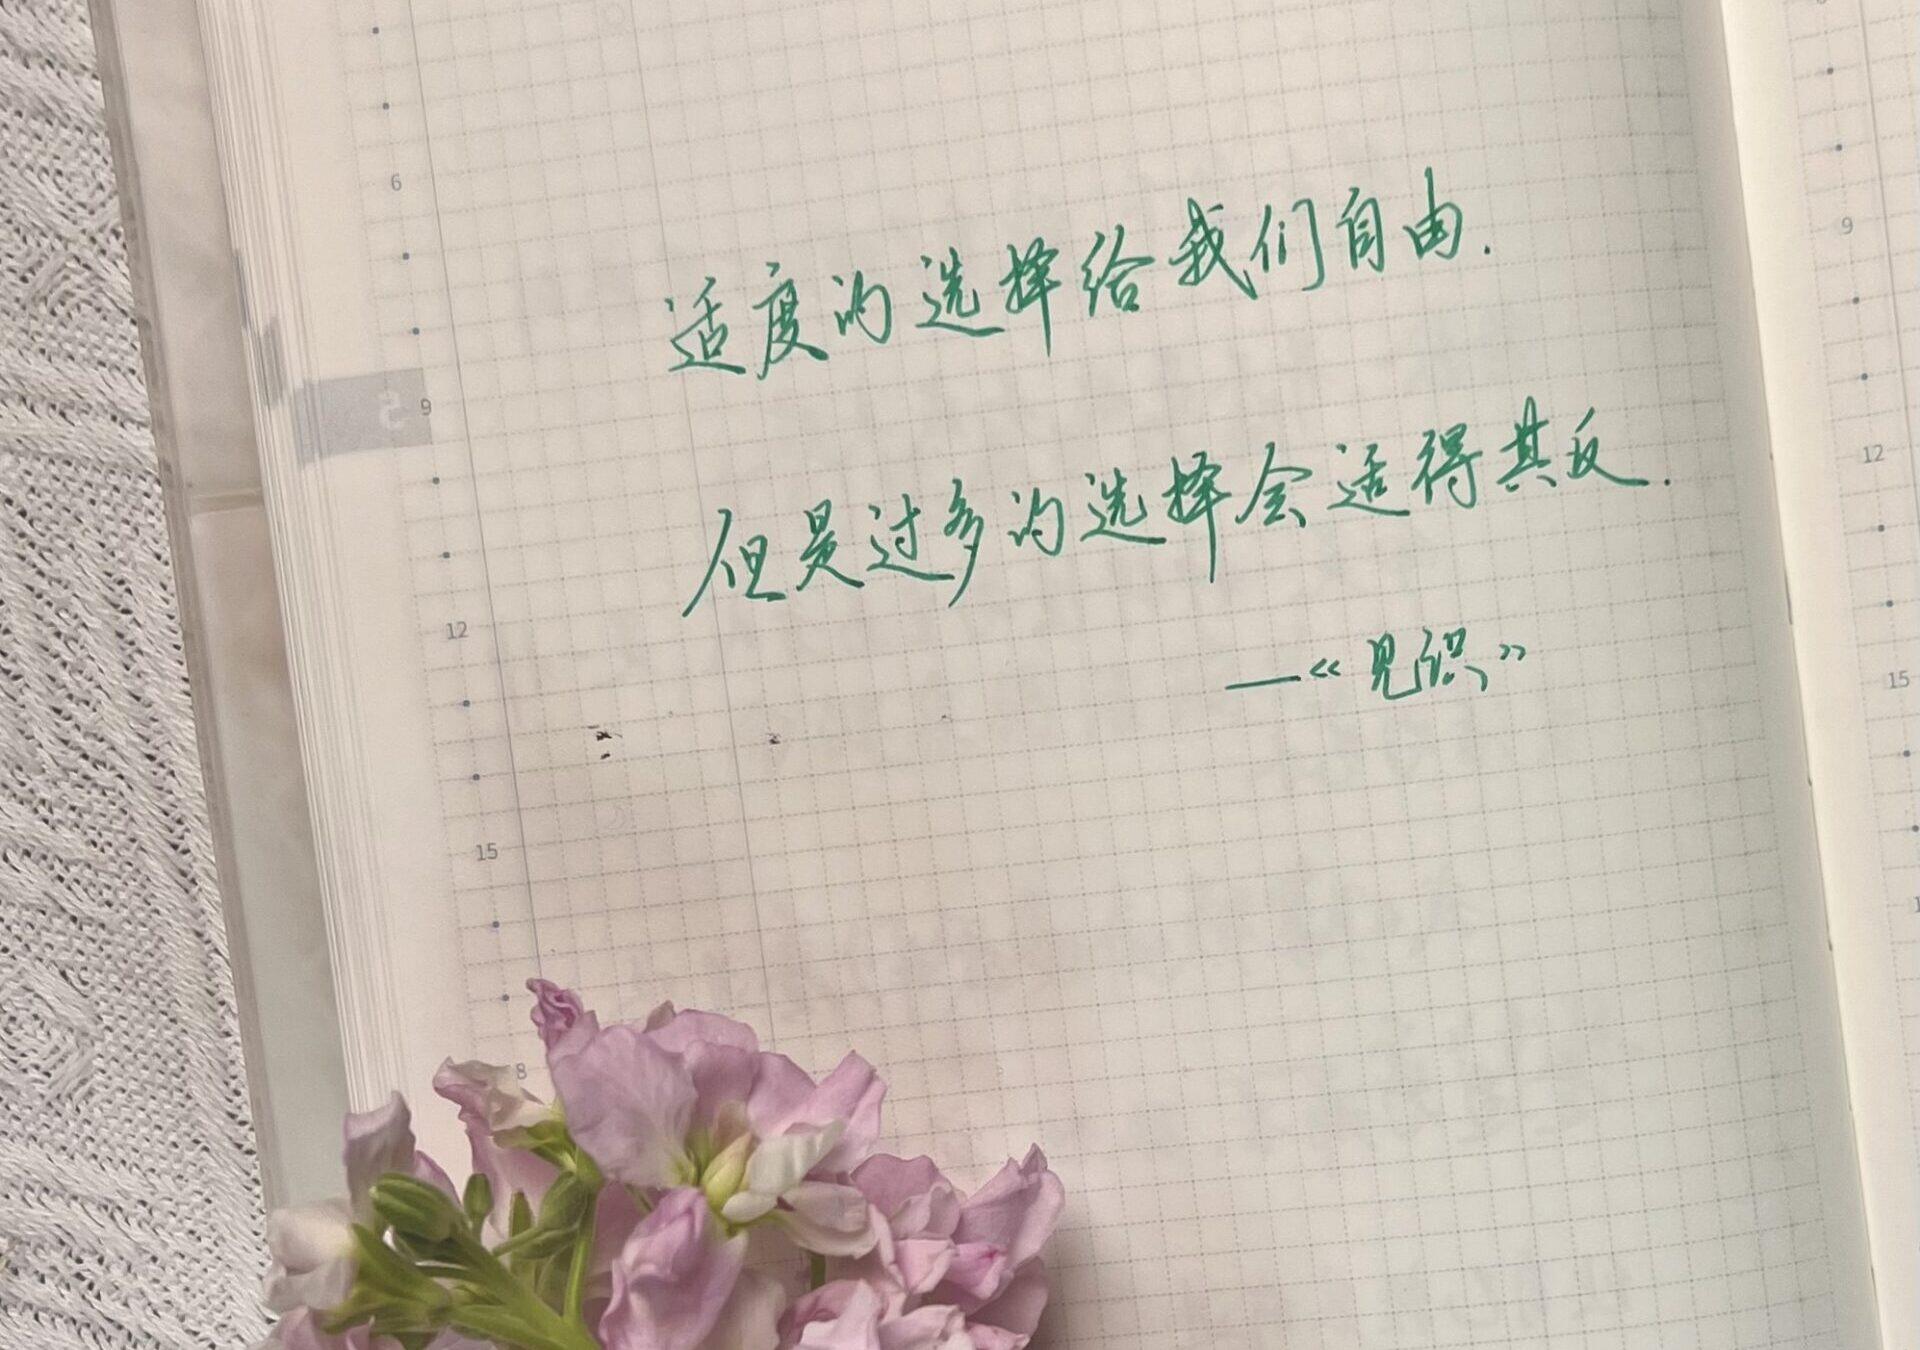 适度的选择给我们自由.
但是过多的选择会适得其反.
—《见识》
6
9
12
15
8
9
12
15